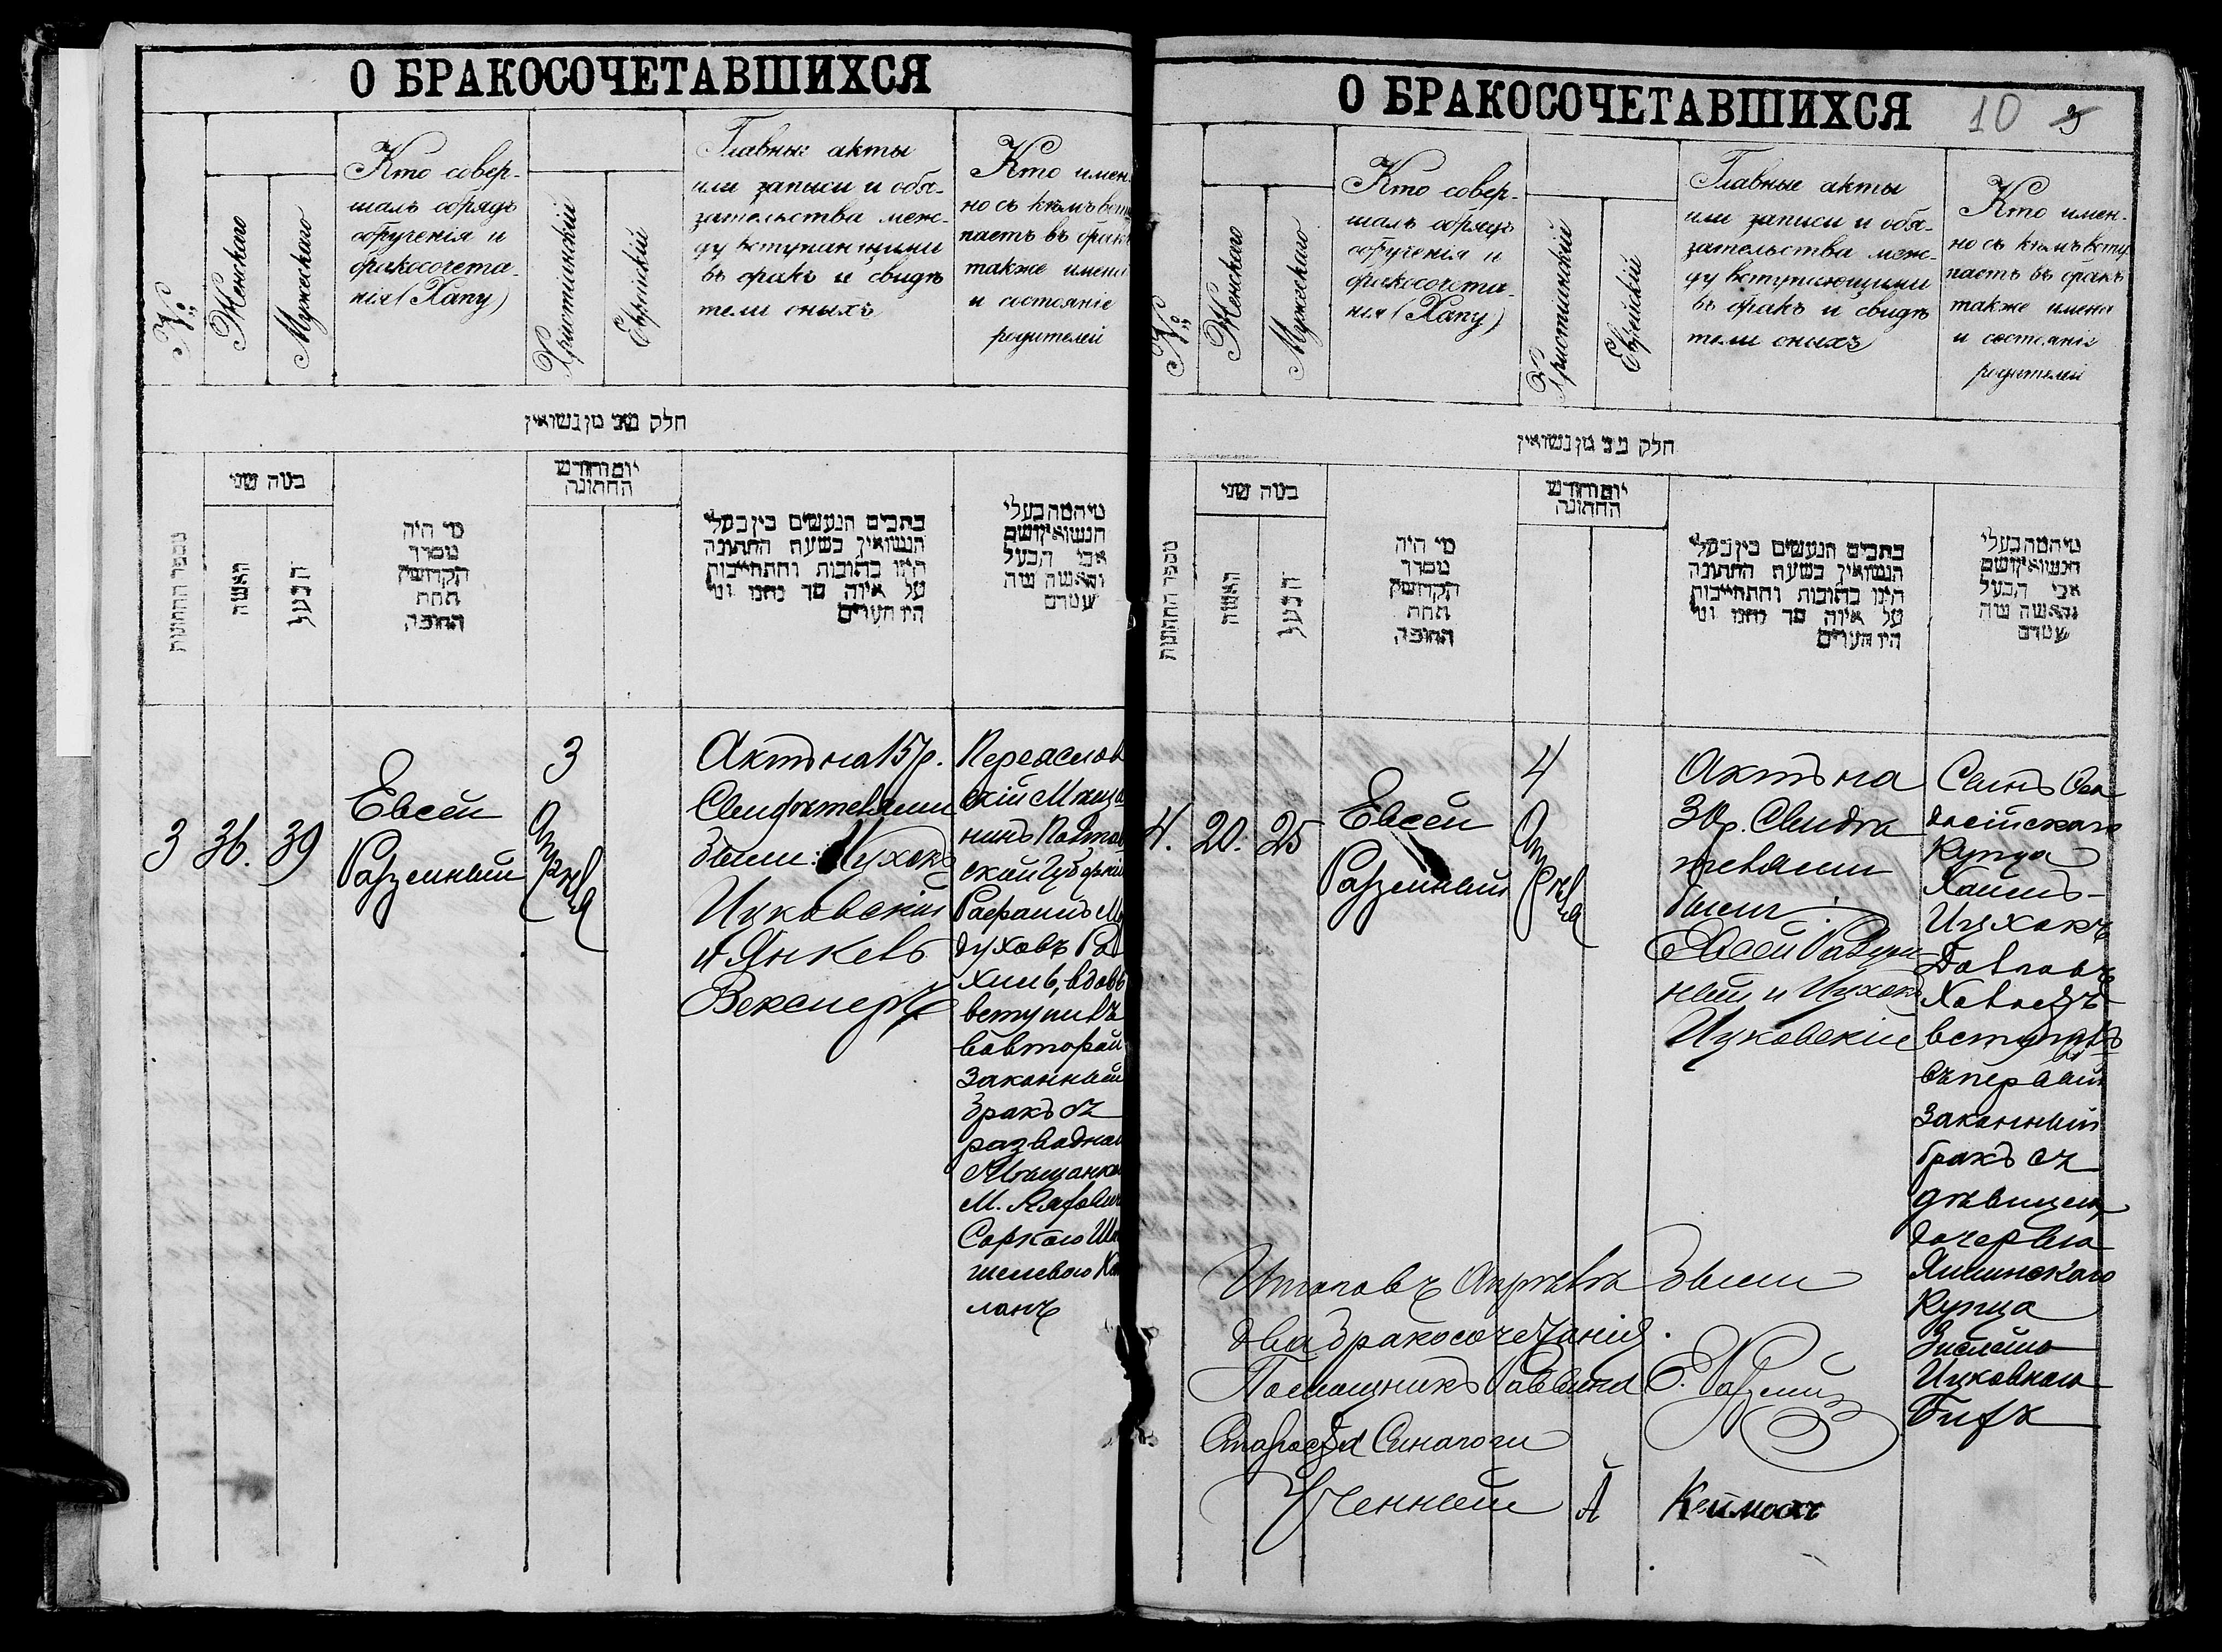 О БРАКОСОЧЕТАВШИХСЯ
№
Женскаго
Мужескаго
Кто совер-
шалъ обрядъ
обрученія и
бракосочета-
нія (Хапу)
Христіанскій
Еврейскій
Главные акты
или записи и обя-
зательства меж-
ду вступающими
въ бракъ и свидѣ
тели оныхъ
Кто имен
но съ кѣмъ всту
паетъ въ бракъ
также имена
и состояніе
родителей
חלק שני מן נשואין
מספר החתונות
כמה שני
האשה
הבעל
מי היה
מסדר
הקדושין
תחת
החופה
יום וחודש
החתונה
כתבים הנעשים בין בעלי
הנשואין בשעת החתונה
היינו כתובות והתחייבות
על איזה סך נתנו ומי
היו העדים
מיהמה בעלי
הנשואין ושם
אבי הבעל
והאשה
3
36.
39
Евсей
Разумный
3
Апрѣля
Актъ на 15 р.
Свидѣтелями
были: Ицхокъ
Ицковскій
и Янкель
Векслеръ
Переяслов
скій Мѣща
нинъ Полтав
ской Губерніи
Рафаилъ
духовъ
хиль, вдовъ
вступилъ
во второй
законный
бракъ съ
разводною
Мѣщанкою
М.
Соркою
шелевою
ланъ
О БРАКОСОЧЕТАВШИХСЯ
10
№
Женскаго
Мужескаго
Кто совер-
шалъ обрядъ
обрученія и
бракосочета-
нія (Хапу)
Христіанскій
Еврейскій
Главные акты
или записи и обя-
зательства меж-
ду вступающими
въ бракъ и свидѣ
тели оныхъ
Кто имен-
но съ кѣмъ всту
паетъ въ бракъ
также имена
и состояніе
родителей
חלק שני מן נשואין
מספר החתונות
כמה שני
האשה
הבעל
מי היה
מסדר
הקדושין
תחת
החופה
יום וחודש
החתונה
כתבים הנעשים בין בעלי
הנשואין בשעת החתונה
היינו כתובות והתחייבות
על איזה סך נתנו ומי
היו העדים
מיהמה בעלי
הנשואין ושם
אבי הבעל
והאשה
4.
20.
25
Евсей
Разумный
4
Апрѣля
Актъ на
30 р. Свидѣ
телями
были:
Евсей Разум
ный и Ицхокъ
Ицковскій
Сынъ Ѳео
досійскаго
Купца
Хаимъ-
Ицхокъ
вступилъ
въ первый
законный
бракъ съ
дѣвицею
дочерью
Купца
Ицковною
Итого въ Апрѣлѣ были
два бракосочетанія.
Помощникъ Раввина Е. Разумный
Староста Синагоги
Ученный А